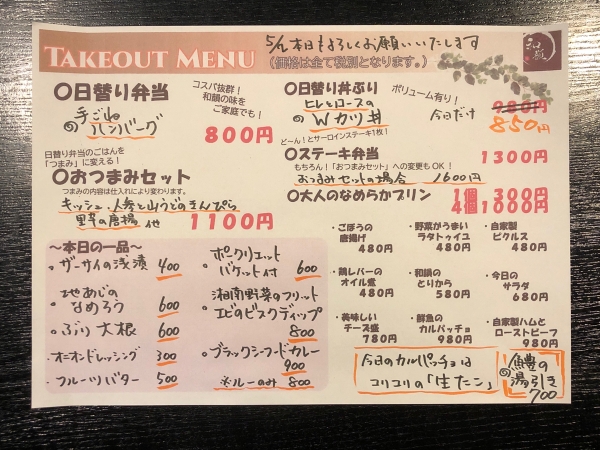 TAKEOUT MENU
5/1 本日もよろしくお願いいたします
(価格は全て税別となります。)
〇日替り弁当
コスパ抜群!
和顔の味を
ご家庭でも!
手ごねの
ハンバーグ
800円
日替り弁当のごはんを
「つまみ」に変える!
〇おつまみセット
つまみの内容は仕入れにより変わります。
キッシュ・人参と山うどのきんぴら
野辛の唐揚 他
1100円
〇日替り丼ぶり
ボリューム有り!
ヒレとロースの
Wカツ丼
今日だけ
980円
850円
どーん!とサーロインステーキ1枚!
〇ステーキ弁当
1300円
もちろん!「おつまみセット」への変更もOK!
おつまみセットの場合 1600円
〇大人のなめらかプリン
1個 300円
4個1000円
・ごぼうの
唐揚げ
480円
・野菜がうまい
ラタトゥイユ
480円
・自家製
ピクルス
480円
・鶏レバーの
オイル煮
480円
・和顔の
とりから
580円
・今日の
サラダ
680円
・美味しい
チーズ盛
780円
・鮮魚の
カルパッチョ
980円
・自家製ハムと
ローストビーフ
980円
〜本日の一品〜
・ザーサイの浅漬 400
・地あじの
なめろう 600
・ぶり大根 600
・オニオンドレッシング 300
・フルーツバター 500
・ポークリエット
バゲット付 600
・湘南野菜のフリット
エビのビスクディップ
800
・ブラックシーフードカレー
900
※ルーのみ 800
今日のカルパッチョは
コリコリの「生タン」
鱧の
湯引き
700